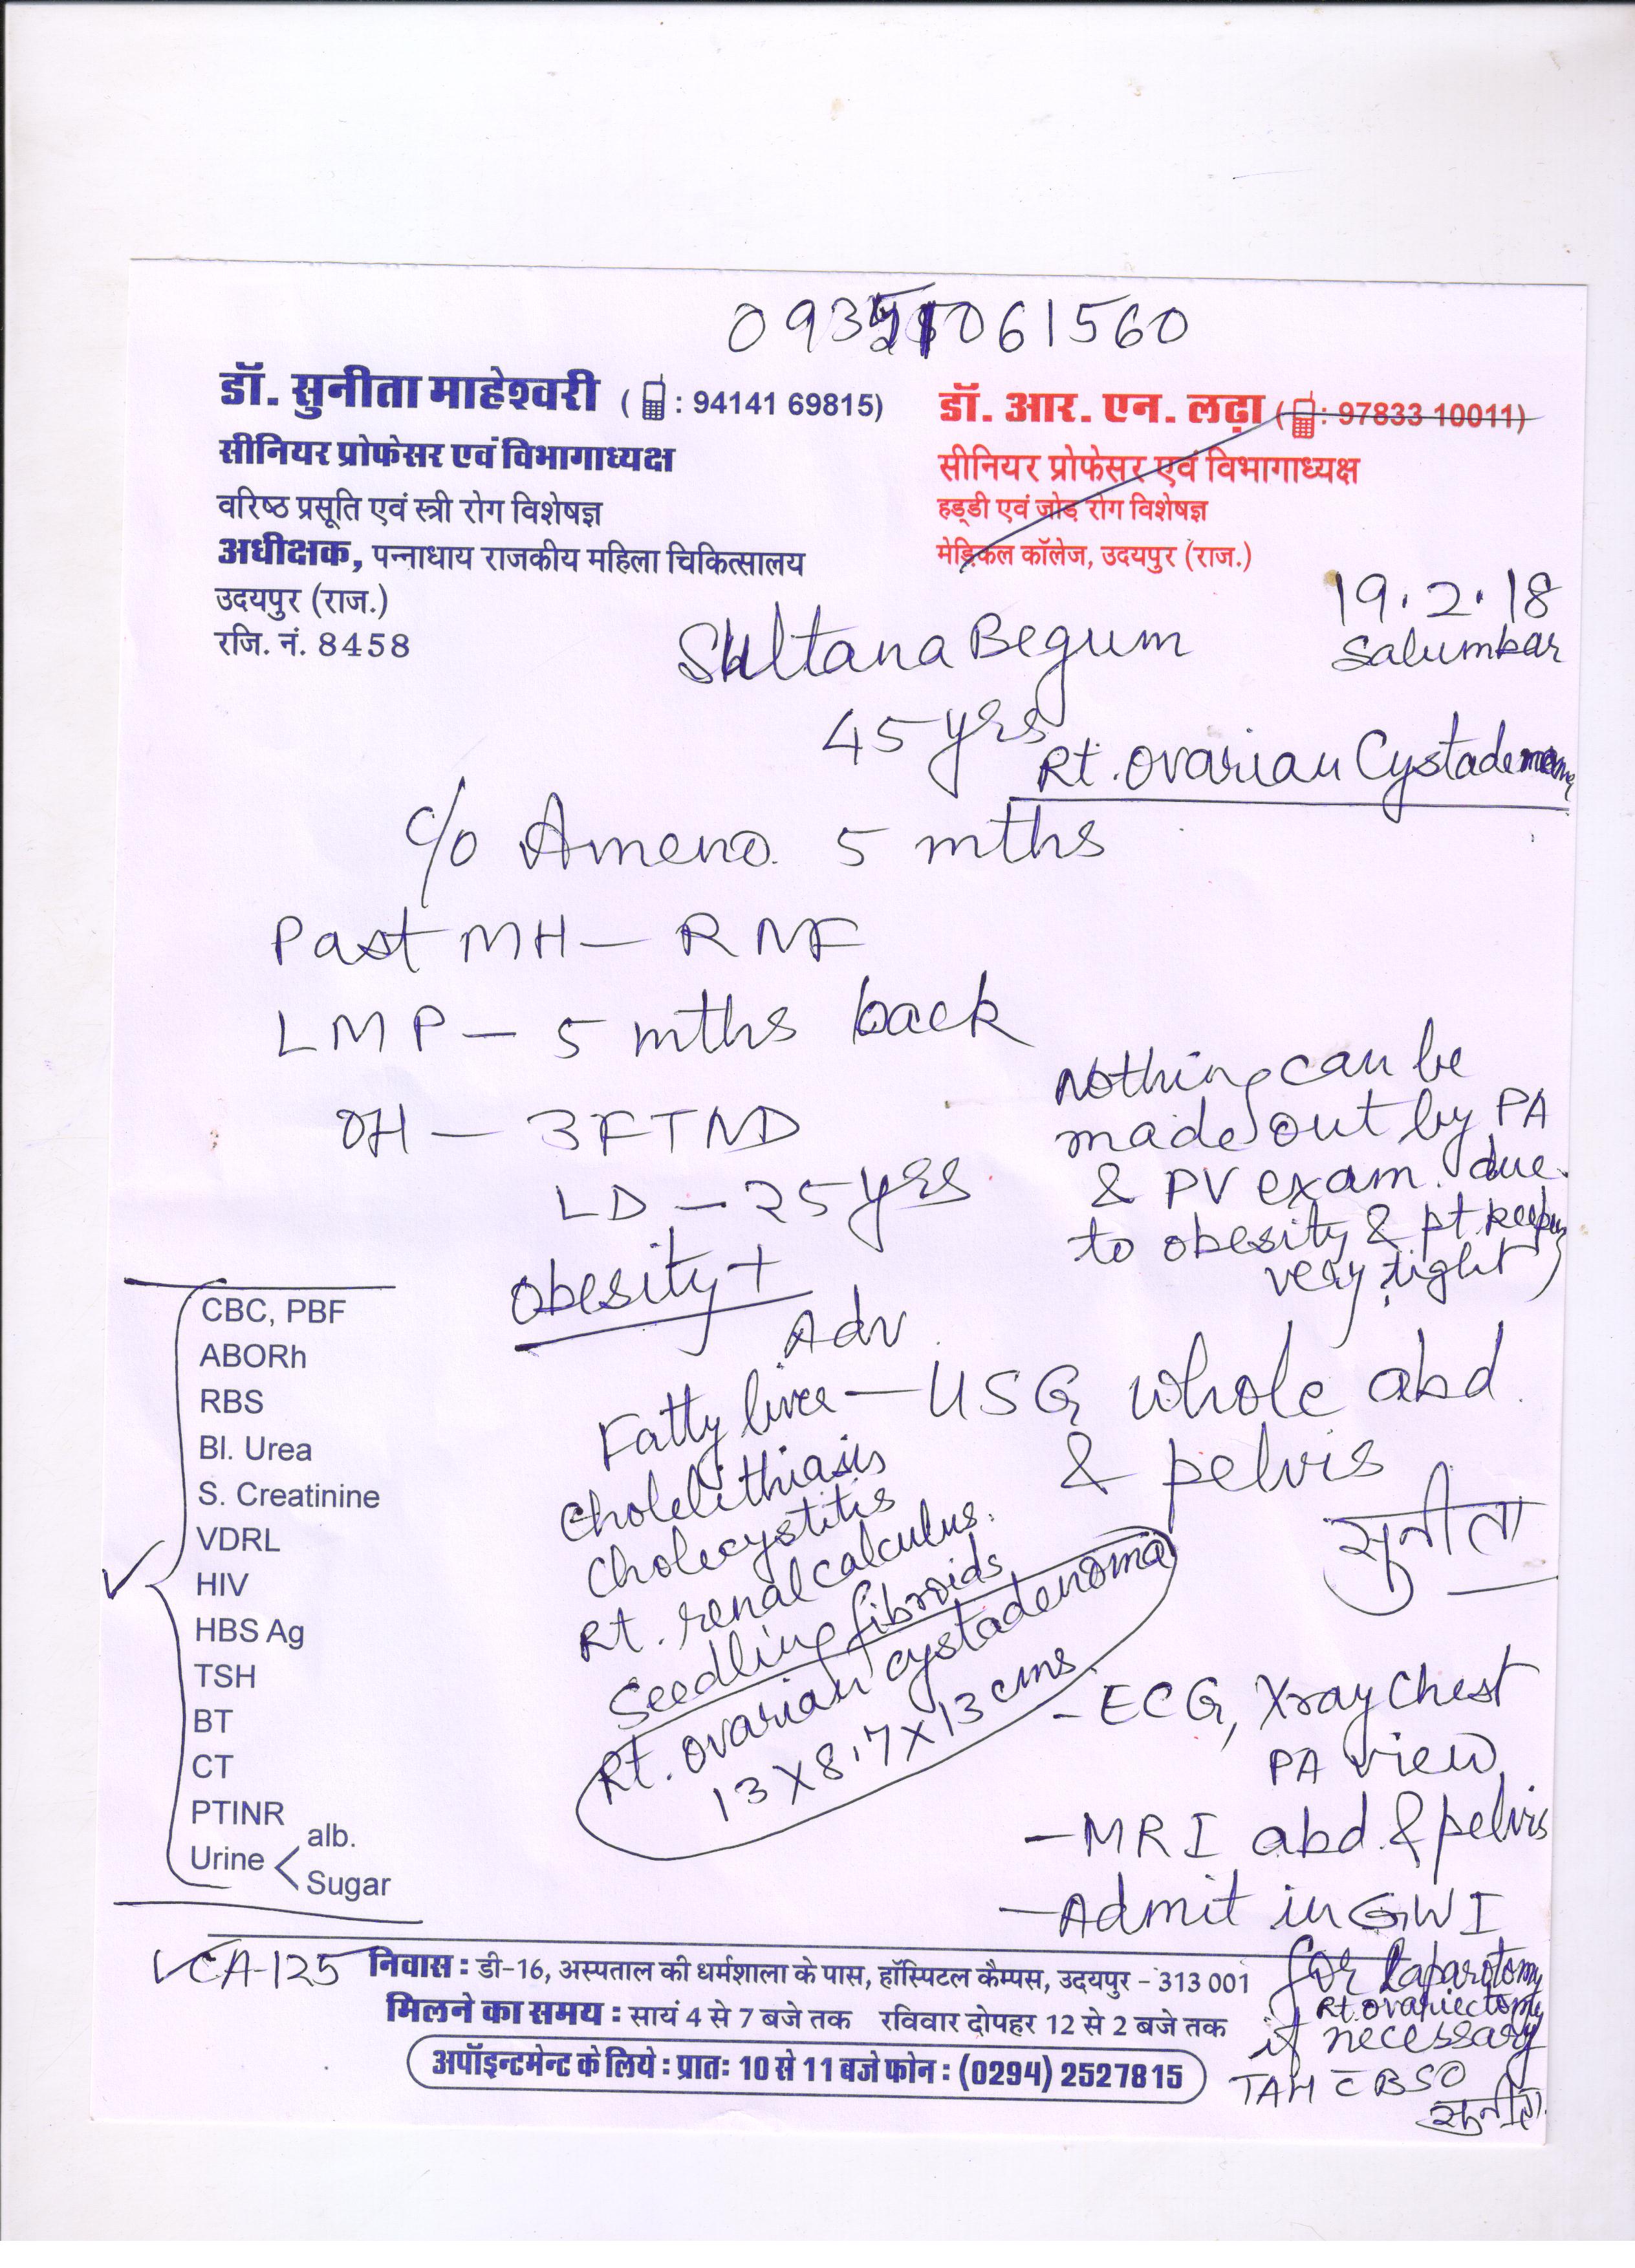 09351061560
डॉ. सुनीता माहेश्वरी ( : 94141 69815)
सीनियर प्रोफेसर एवं विभागाध्यक्ष
वरिष्ठ प्रसूति एवं स्त्री रोग विशेषज्ञ
अधीक्षक, पन्नाधाय राजकीय महिला चिकित्सालय
उदयपुर (राज.)
रजि. नं. 8458
डॉ. आर. एन. लढ़ा ( : 97833 10011)
सीनियर प्रोफेसर एवं विभागाध्यक्ष
हड्डी एवं जोड़ रोग विशेषज्ञ
मेडिकल कॉलेज, उदयपुर (राज.)
19.2.18
Salumbar
Sultana Begum
45 yrs
Rt. Ovarian Cystadenoma
c/o Ameno. 5 mths
Past MH - RNF
LMP - 5 mths back
OH - 3FTND
LD - 25 yrs
Obesity +
Nothing can be
made out by PA
& PV exam. due
to obesity & pt keeping
very tight
Adv.
- USG whole abd.
& pelvis
सुनीता
Fatty liver
Cholelithiasis
Cholecystitis
Rt. renal calculus.
Seedling fibroids
Rt. Ovarian cystadenoma
13 X 8.7 X 13 cms.
- ECG, Xray Chest
PA view
- MRI abd. & pelvis
- Admit in GWI
for Laparotomy
Rt. Ovariectomy
if necessary
TAH c̄ BSO
सुनीता
CBC, PBF
ABORh
RBS
Bl. Urea
S. Creatinine
VDRL
HIV
HBS Ag
TSH
BT
CT
PTINR
Urine < alb.
Sugar
✓CA-125
निवास : डी-16, अस्पताल की धर्मशाला के पास, हॉस्पिटल कैम्पस, उदयपुर - 313 001
मिलने का समय : सायं 4 से 7 बजे तक रविवार दोपहर 12 से 2 बजे तक
अपॉइन्टमेन्ट के लिये : प्रातः 10 से 11 बजे फोन : (0294) 2527815